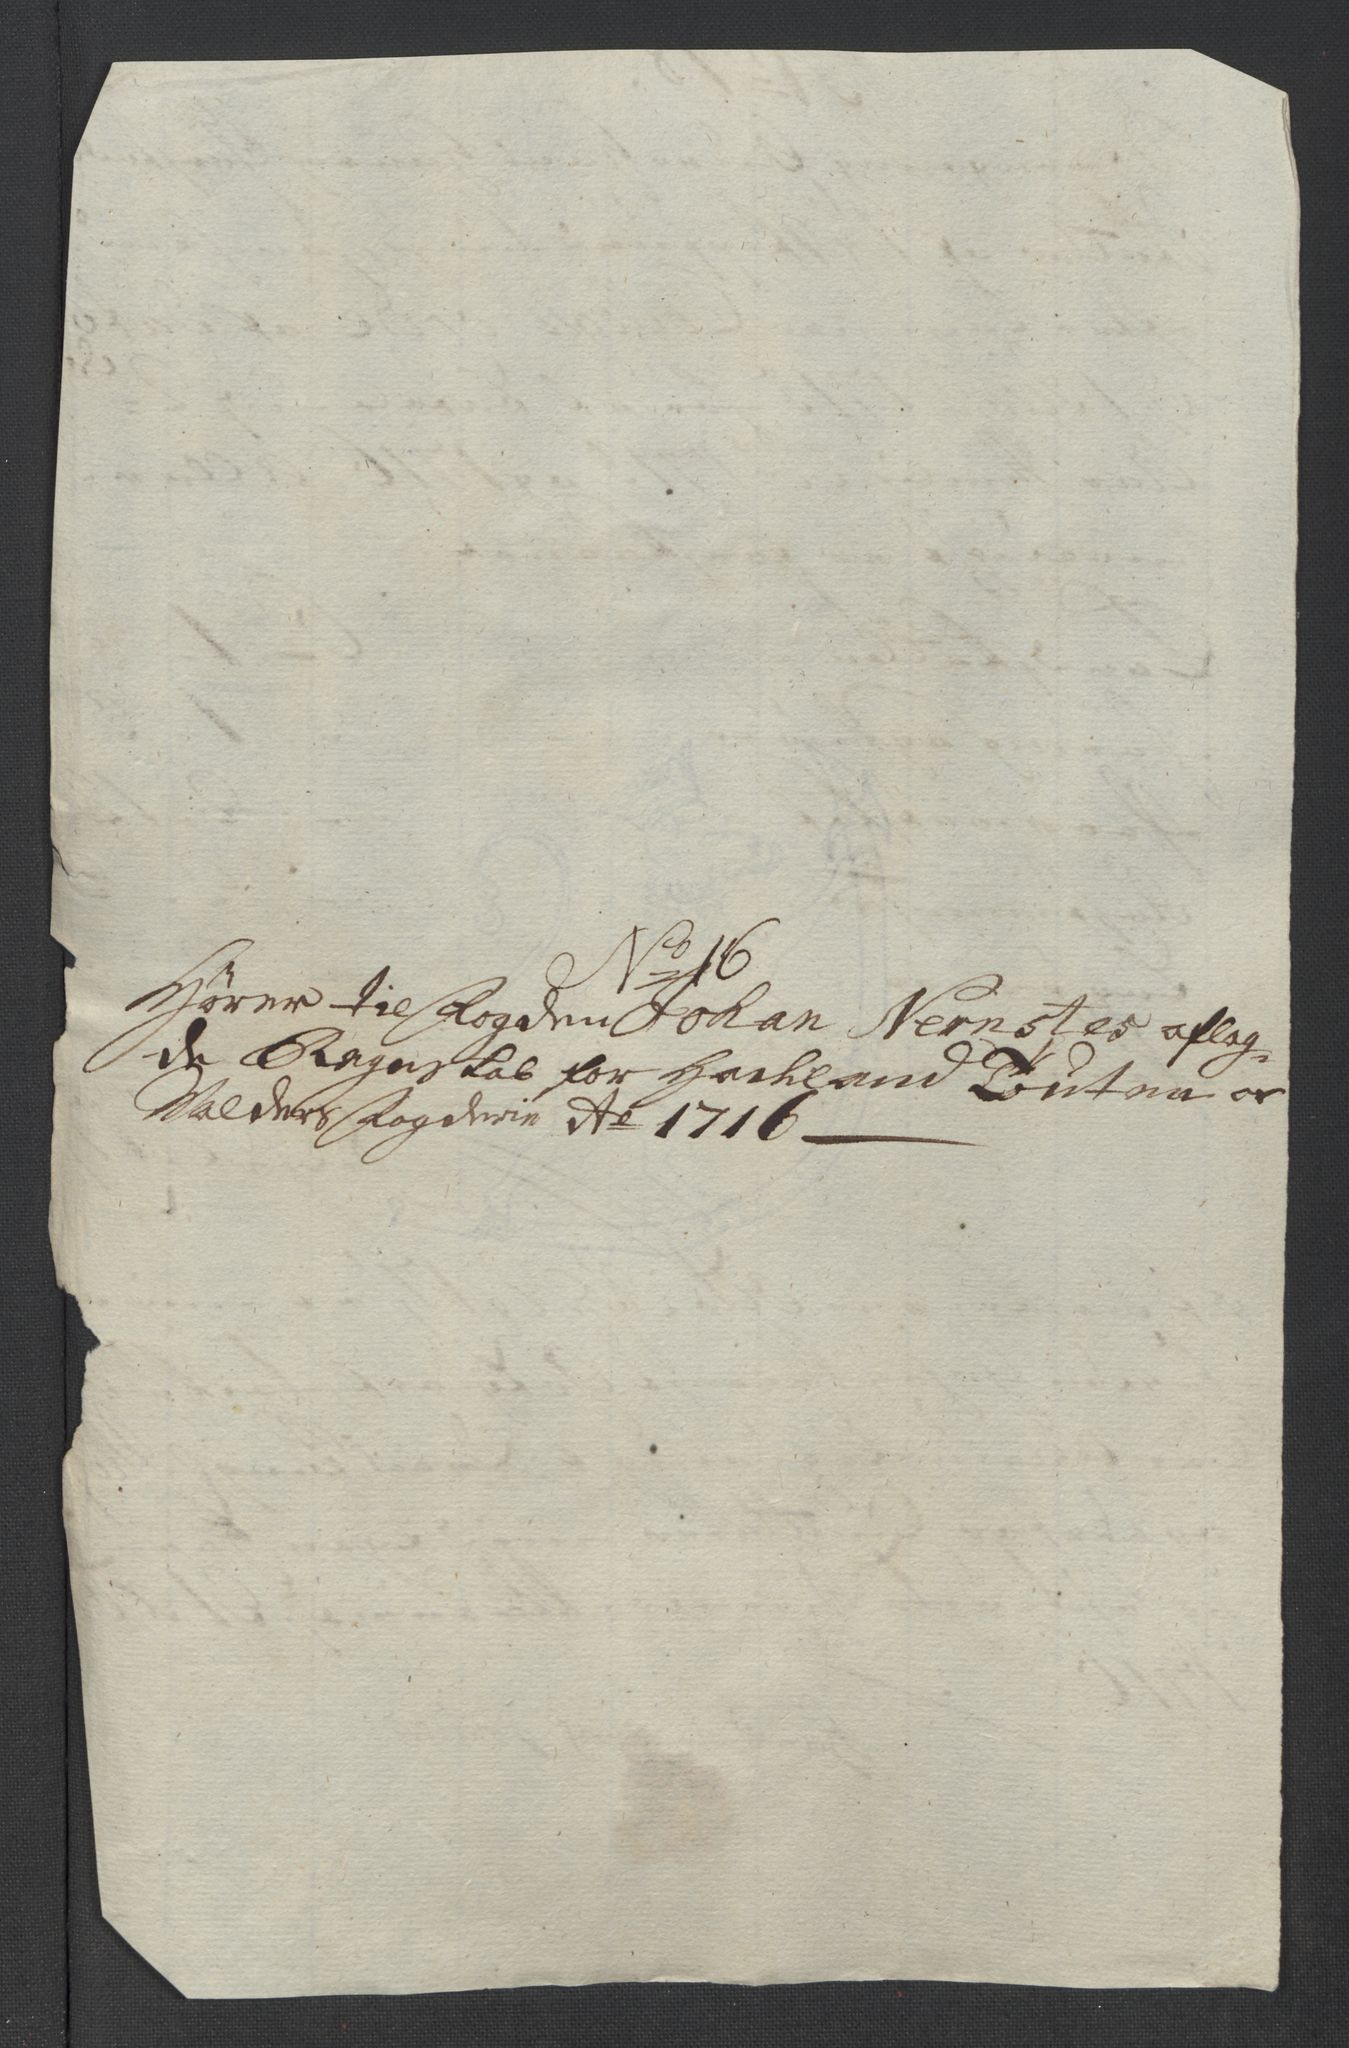 No 16
Hörer til Fogden Johan Nernstes aflag-
de Regnskab for Hadeland Touten oc
Valders Fogderie Ao 1716